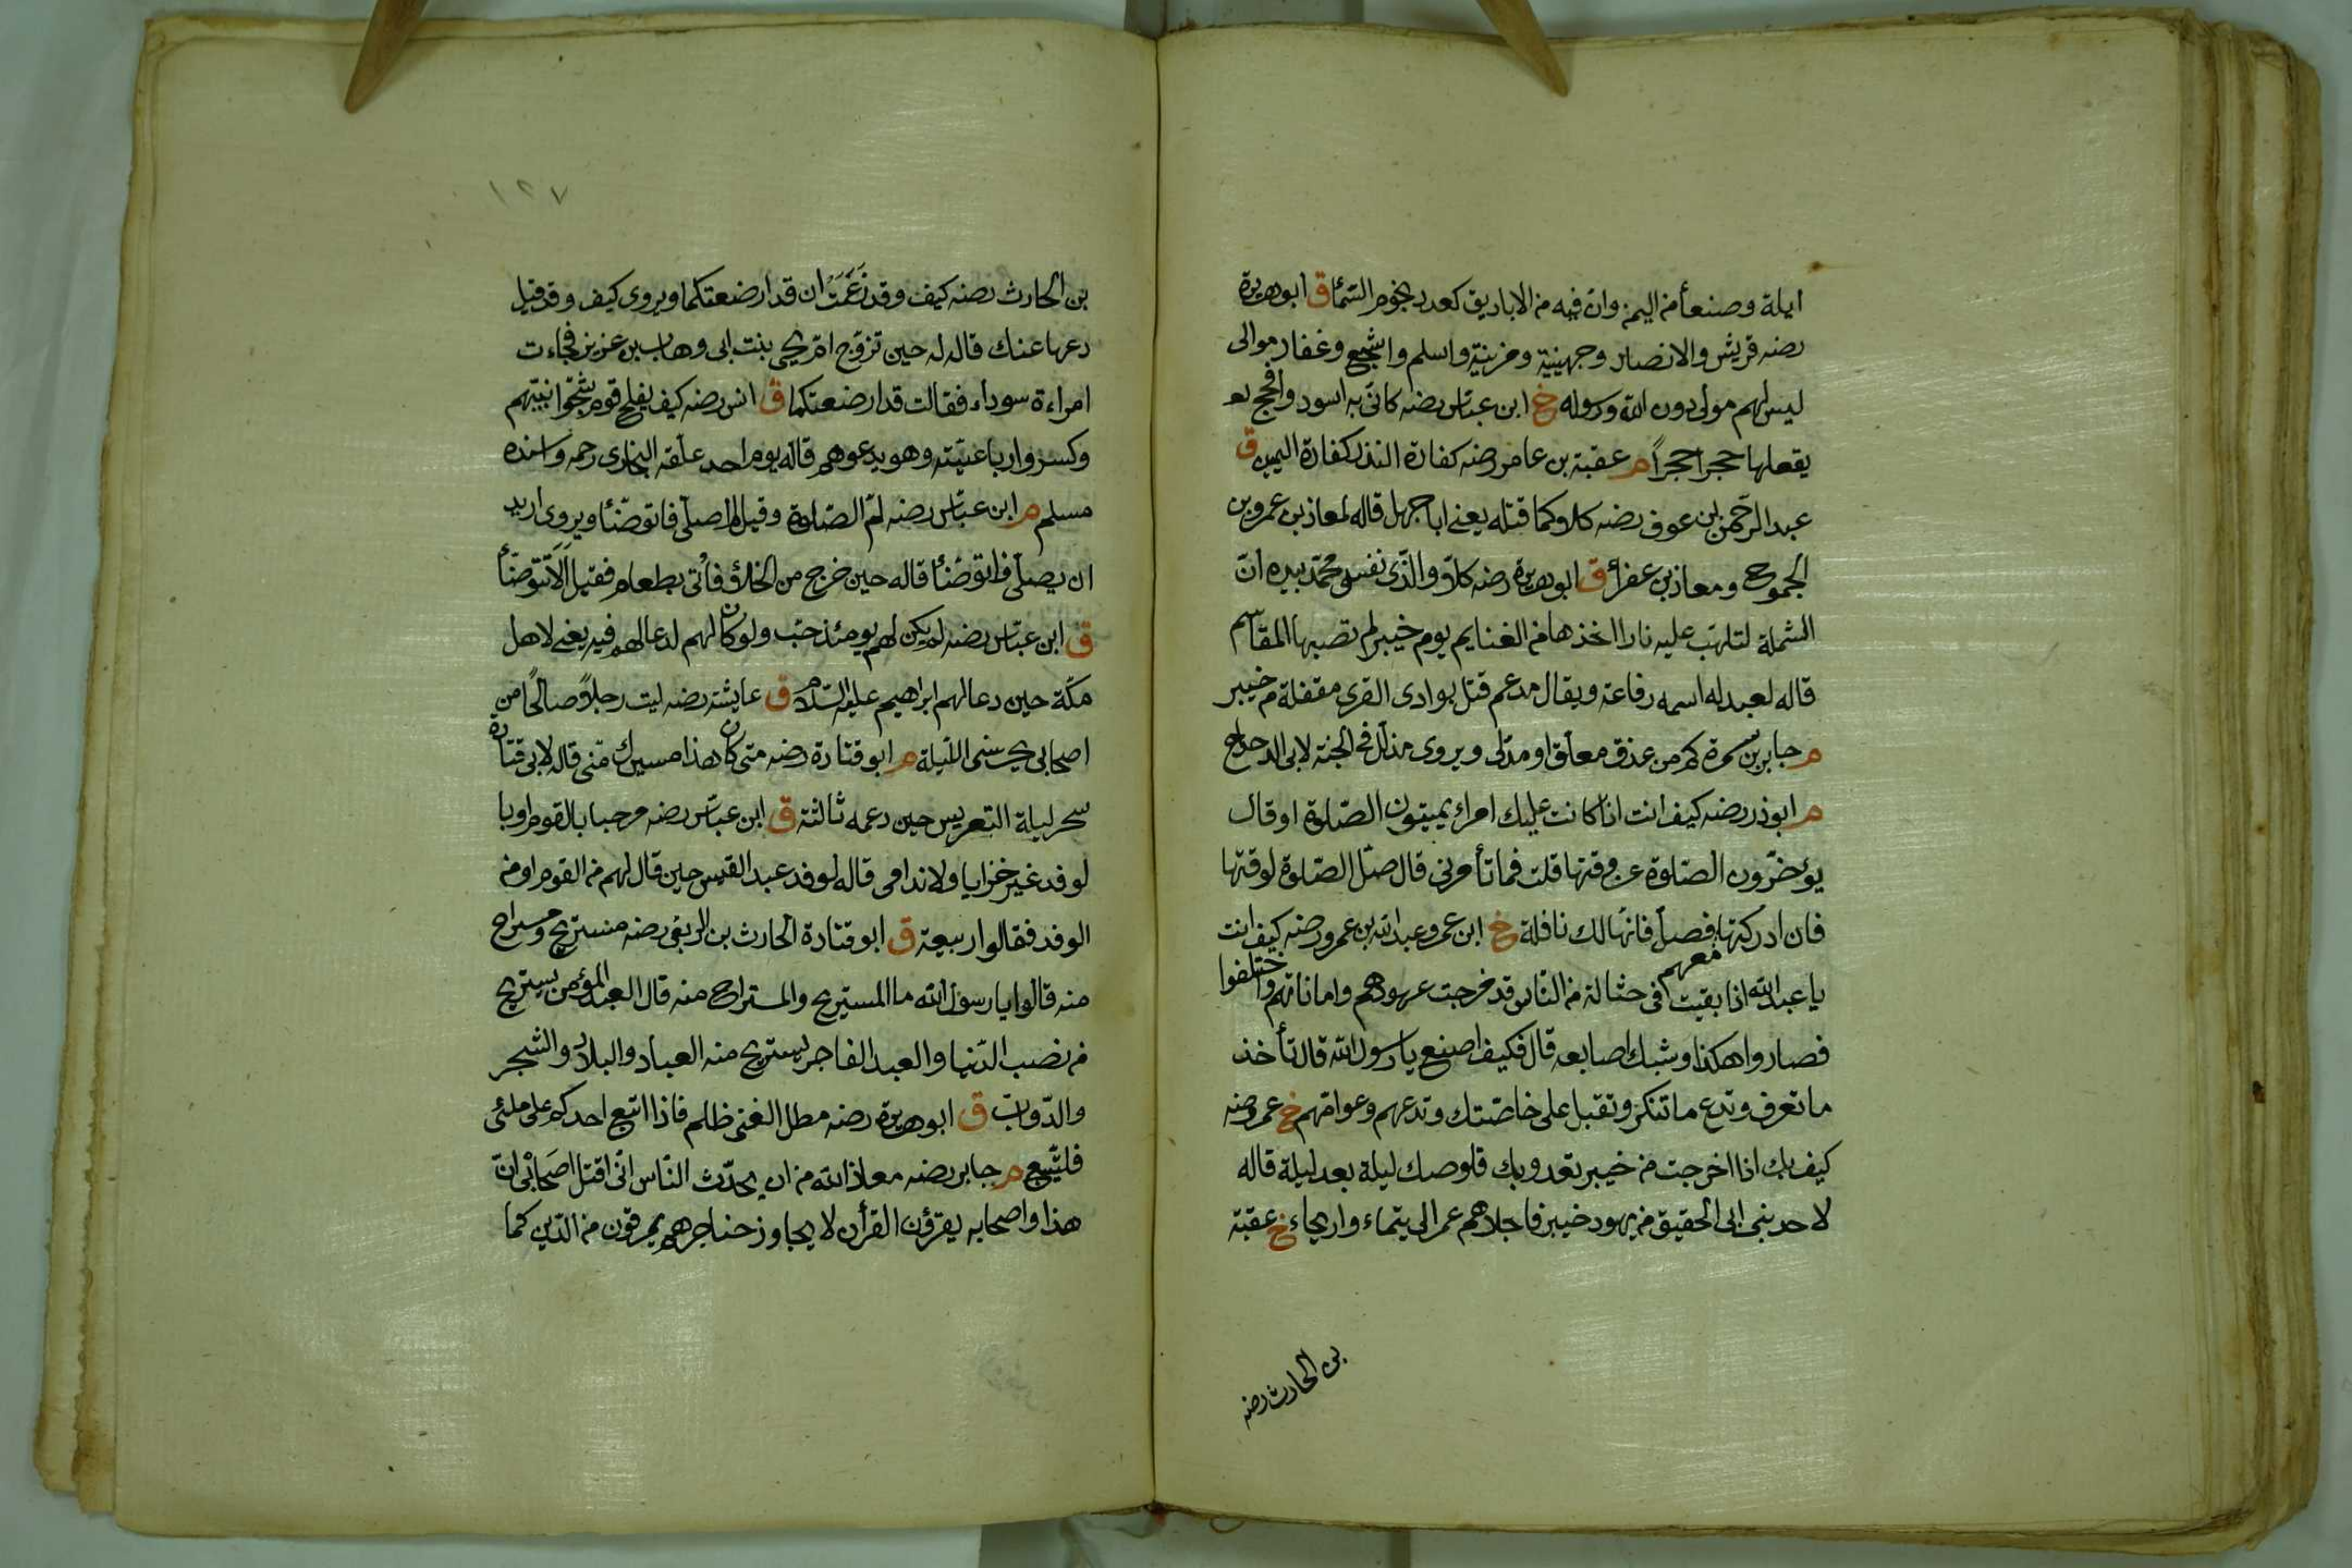 ايلة وصنعأ من اليمن وان فيه من الاباريق كعدد نجوم السمأ ق ابو هريرة
رضه قريش والانصار وجهينة ومزينة واسلم واشجع وغفار موالى
ليس لهم مولى دون الله ورسوله خ ابن عباس رضه كانى به اسود وافحج
يقعلها حجرا حجراً م عقبة بن عامر رضه كفارة النذر كفارة اليمين ق
عبد الرحمن بن عوف رضه كلاوكما قتله يعنى ابا جهل قاله لمعاذ بن عمرو بن
الجموح ومعاذ بن عفرأ ق ابو هريرة رضه كلا والذى نفس محمد بيده ان
الشملة لتلهب عليه نارا اخذها من الغنايم يوم خيبر لم تصبها المقاسم
قاله لعبد له اسمه رفاعة ويقال مدعم قتل بوادى القرى مقفلة من خيبر
م جابر بن سمرة كم من عذق معلق او مدلى ويروى مذلل فى الجنة لابى الدحداح
م ابوذر رضه كيف انت اذا كانت عليك امراء يميتون الصلوة او قال
يؤخرون الصلوة عن وقتها قلت فما تأمرنى قال صل الصلوة لوقتها
فان ادركتها معهم فصل فانها لك نافلة خ ابن عمر وعبد الله بن عمرو رضه كيف انت
يا عبد الله اذا بقيت فى حثالة من الناس قد مرجت عهودهم واماناتهم واختلفوا
فصاروا هكذا وشبك اصابعه قال فكيف اصنع يا رسول الله قال تأخذ
ما تعرف وتدع ما تنكر وتقبل على خاصتك وتدعهم وعوامهم خ عمر رضه
كيف بك اذا اخرجت من خيبر تعدو بك قلوصك ليلة بعد ليلة قاله
لاحد بنى ابى الحقيق من يهود خيبر فاجلاهم عمر الى يتماء واريحاء خ عقبة
بن الحارث رضه
١٢٧
بن الحارث رضه كيف وقد زَعَمَتْ ان قد ارضعتكما ويروى كيف وقد قيل
دعها عنك قاله له حين تزوج ام يحيى بنت ابى وهاب بن عزيز فجاءت
امراءة سوداء فقالت قد ارضعتكما ق انس رضه كيف يفلح قوم شجوا نبيهم
وكسروا رباعيته وهو يدعوهم قاله يوم احد علقه البخارى رحمه واسنده
مسلم م ابن عباس رضه لم الصلوة وقيل لم اصلى فاتوضئا ويروى اريد
ان يصلى فاتوضئا قاله حين خرج من الخلاء فأتى بطعام فقيل اَلاَ تتوضأ
ق ابن عباس رضه لم يكن لهم يومئذ حب ولو كان لهم لدعا لهم فيه يعنى لاهل
مكة حين دعا لهم ابراهيم عليه السلام ق عايشة رضه ليت رجلاً صالحاً من
اصحابى يحرسنى الليلة م ابو قتادة رضه متى كان هذا مسيرك منى قاله لابى قتادة
سحر ليلة التعريس حين دعمه ثالثة ق ابن عباس رضه مرحبا بالقوم او با
لوفد غير خزايا ولا ندامى قاله لوفد عبد القيس حين قال لهم من القوم او من
الوفد فقالوا ربيعة ق ابو قتادة الحارث بن الربعى رضه مستريح ومستراح
منه قالوا يا رسول الله ما المستريح والمستراح منه قال العبد المؤمن يستريح
من نصب الدنيا والعبد الفاجر يستريح منه العباد والبلاد والشجر
والدواب ق ابو هريرة رضه مطل الغنى ظلم فاذا اتبع احدكم على ملئى
فليتبع م جابر رضه معاذ الله من ان يحدث الناس انى اقتل اصحابى ان
هذا واصحابه يقرؤن القرأن لا يجاوز حناجرهم يمرقون من الدين كما